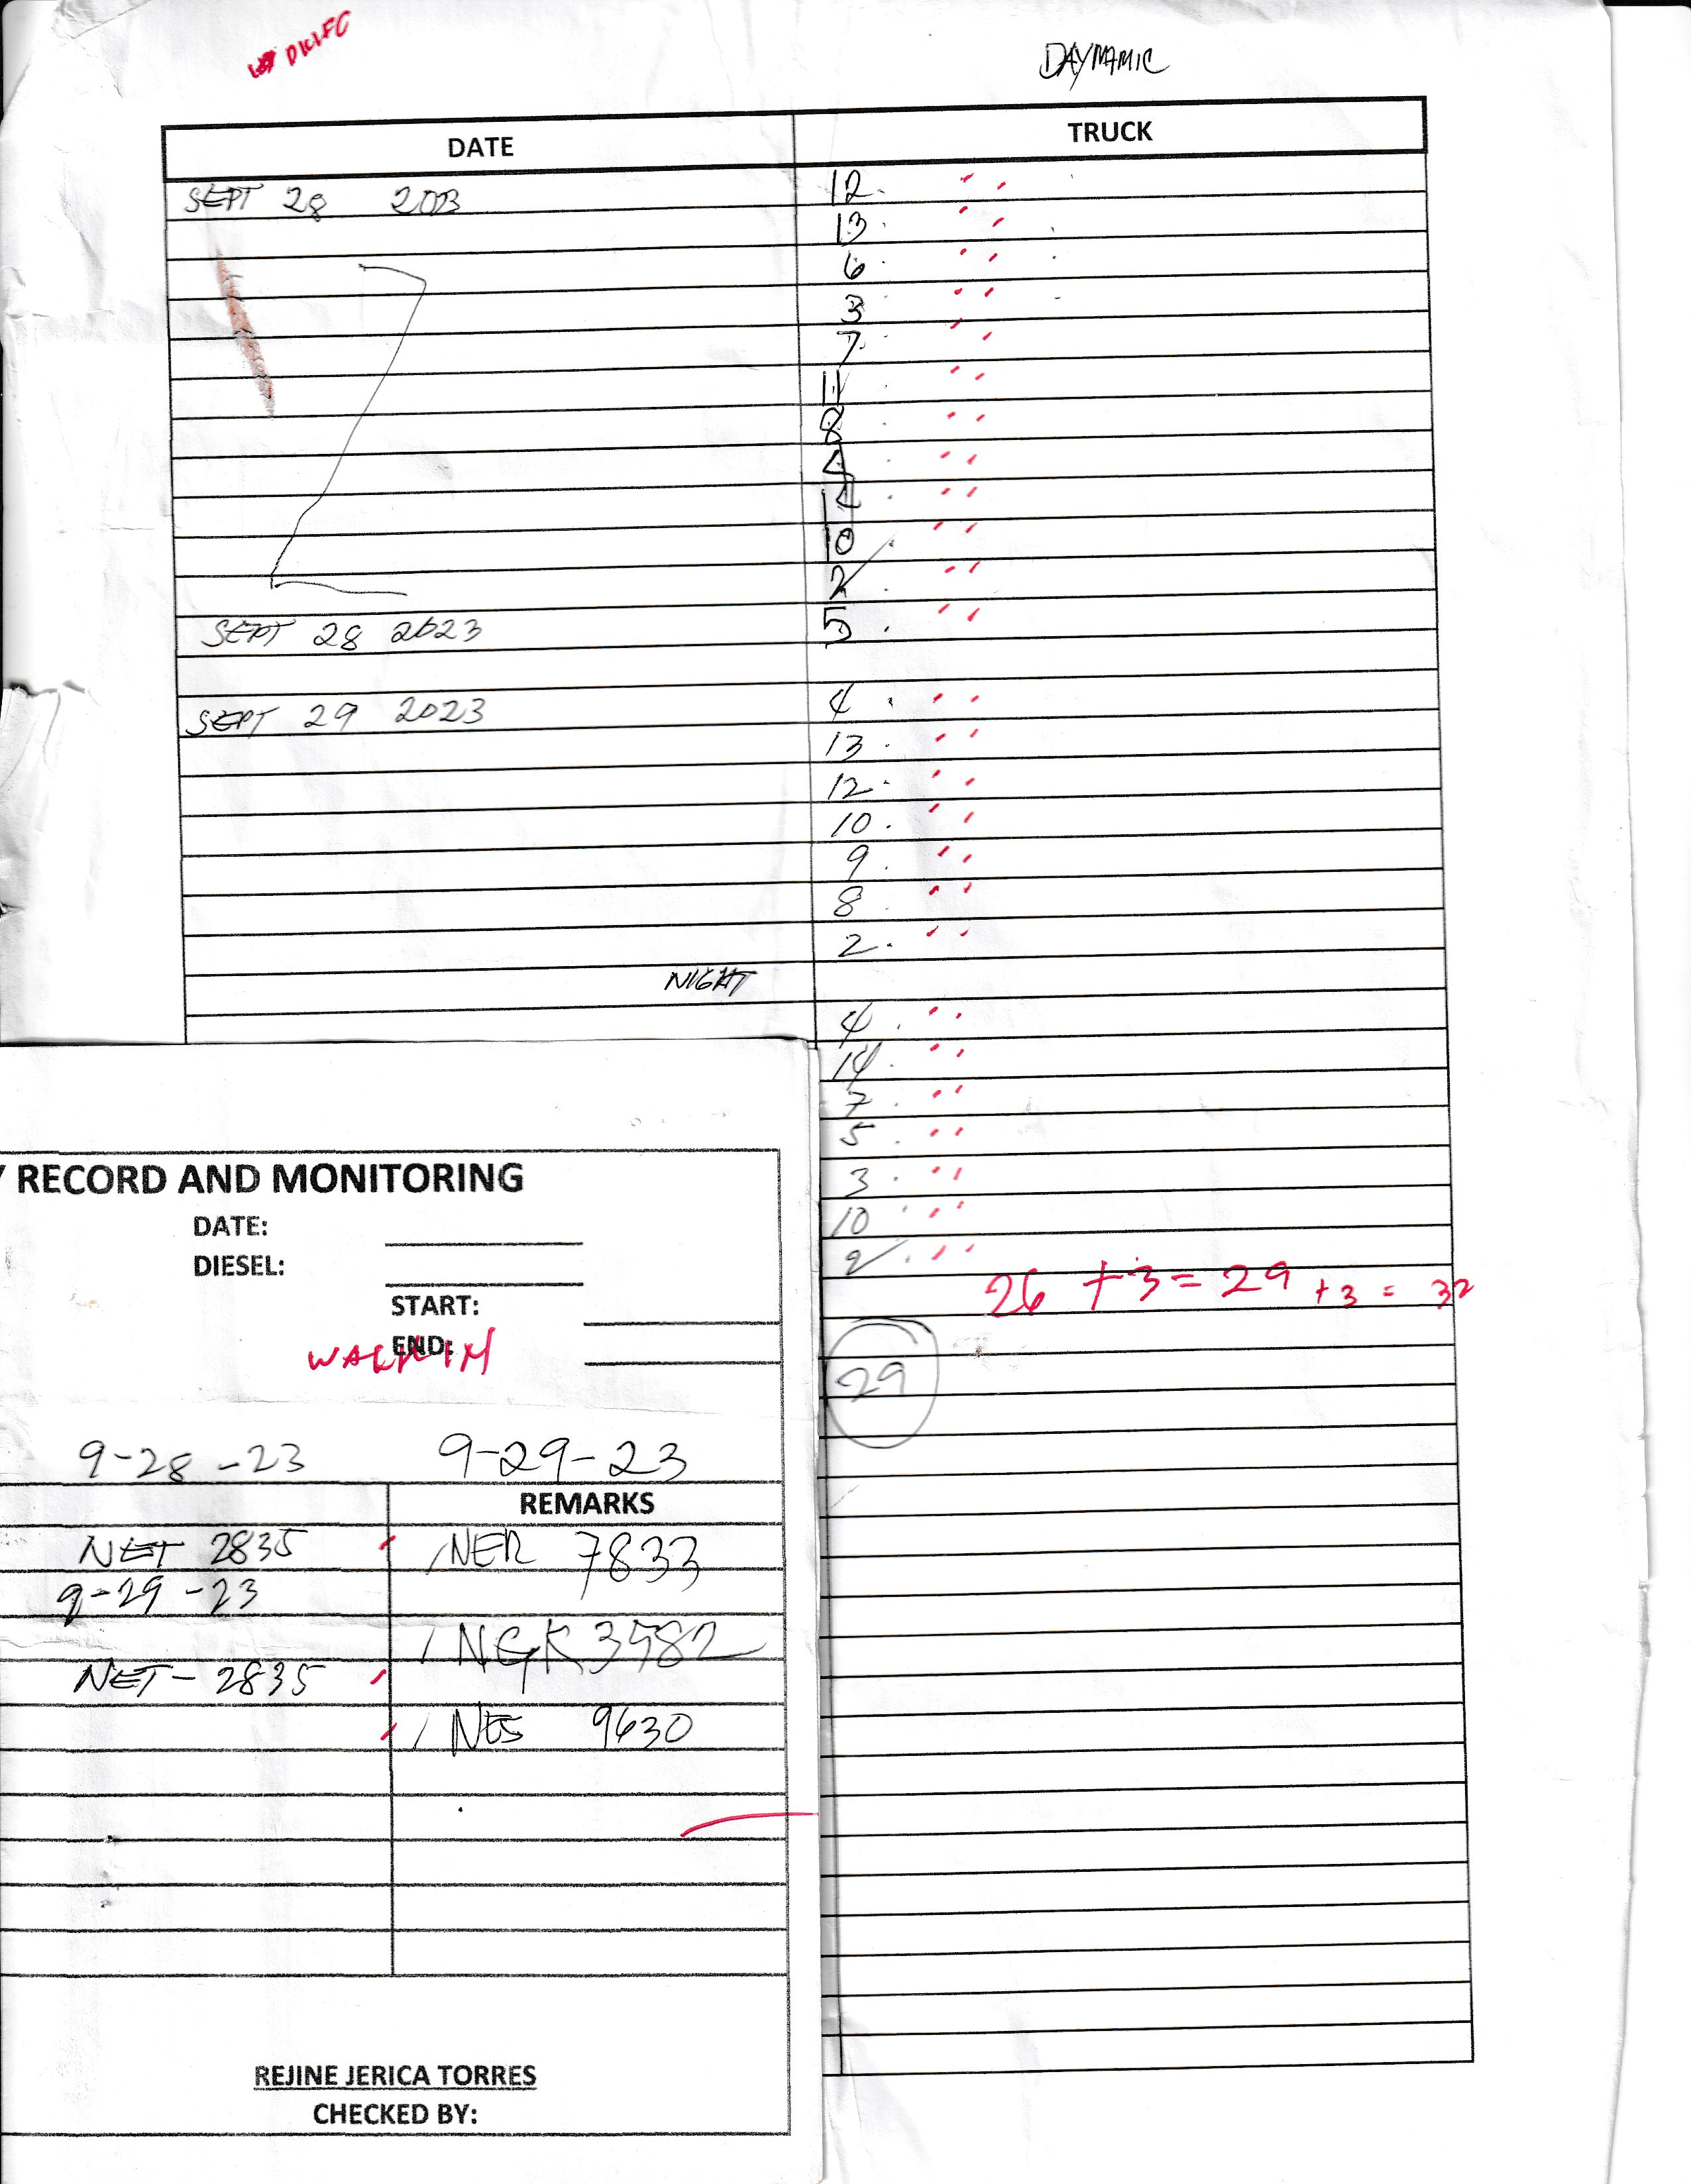 DKLFC
DAYNAMIC
DATE TRUCK
SEPT 28 2023 12.
13.
6.
3
7.
11
8
4
14
10
2
SEPT 28 2023 5.
SEPT 29 2023 4.
13.
12.
10.
9.
8
2.
NIGHT
4.
14.
7.
5.
3.
10
2
26 + 3 = 29 + 3 = 32
29
RECORD AND MONITORING
DATE:
DIESEL:
START:
END:
WALK IN
9-28-23 9-29-23
REMARKS
NET 2835 NER 7833
9-29-23
NGK 3582
NET - 2835
NES 9630
REJINE JERICA TORRES
CHECKED BY: